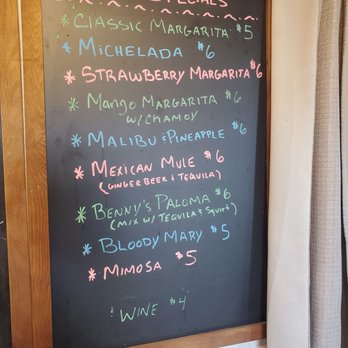 SPECIALS
* CLASSIC MARGARITA $5
* MICHELADA $6
* STRAWBERRY MARGARITA $6
* MANGO MARGARITA $6
W/CHAMOY
* MALIBU & PINEAPPLE $6
* MEXICAN MULE $6
(GINGER BEER & TEQUILA)
* BENNY'S PALOMA $6
(MIX W/ TEQUILA & SQUIRT)
* BLOODY MARY $5
* MIMOSA $5
& WINE $4